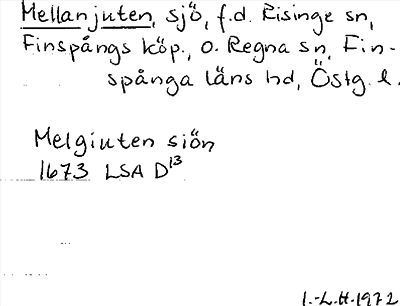 Mellanjuten, sjö, f.d. Risinge sn,
Finspångs köp., o. Regna sn, Fin-
spånga läns hd, Östg. l.
Melgiuten siön
1673 LSA D¹³
I.-L.H.1972